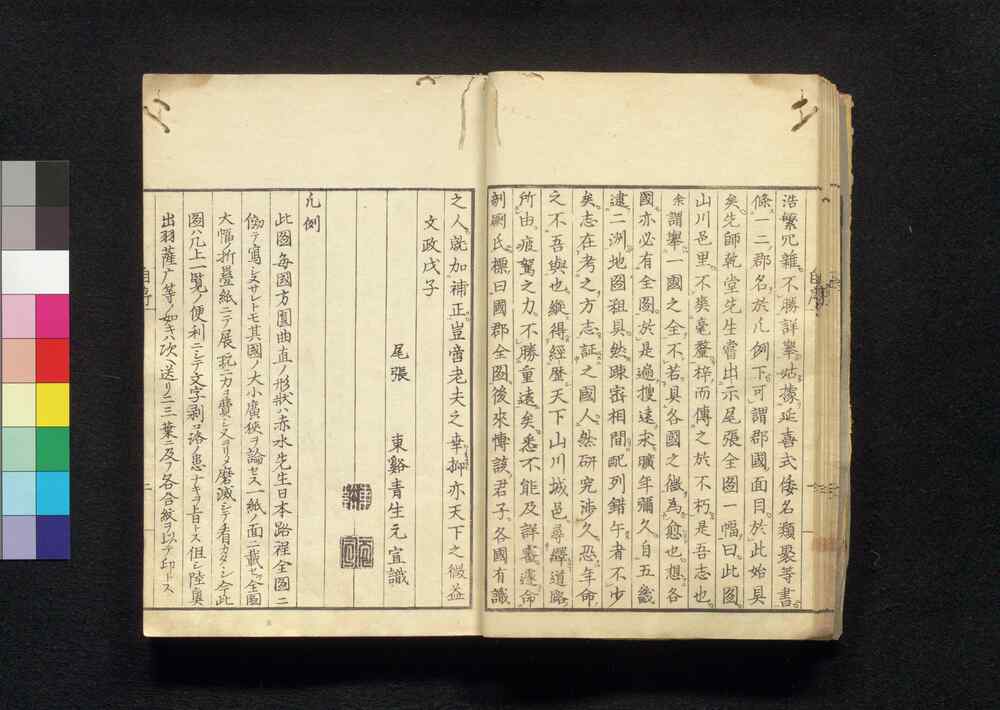 浩繁冗雜不勝詳擧姑據延喜式倭名類聚等書
條一二郡名於凡例下可謂郡國面目於此始具
矣先師乾堂先生嘗出示尾張全圖一幅曰此圖
山川邑里不爽毫釐梓而傳之於不朽是吾志也
余謂擧一國之全不若具各國之徴為愈也想各
國亦必有全圖於是遍搜遠求曠年彌久自五畿
逮二洲地圖粗具然踈密相間配列錯午者不少
矣志在考之方志証之國人然研究渉久恐年命
之不吾與也縱得經歴天下山川城邑尋繹道路
所由疲駕之力不勝重遠矣悉不能及詳審遂命
剞劂氏標曰國郡全圖後來博談君子各國有識
之人㡬加補正豈啻老夫之幸抑亦天下之裨益
文政戊子
尾張　東谿青生元宣識
凡例
此圖每國方圓曲直ノ形狀ハ赤水先生日本路程全圖ニ
倣テ寫シ又サレトモ其國ノ大小廣狹ヲ論セス一紙ノ面ニ載セ全圖
大幅ノ折疊紙ニテ展玩ニ力ヲ費シ又ヨリメ磨滅シテ看カタシ今此
圖ハ几上一覧ノ便利ニシテ文字剥落ノ患ナキヲ旨トス但シ陸奥
出羽薩广等ノ如キハ次ヘ送リ二三葉ニ及フ各合紋ヲ以テ印トス